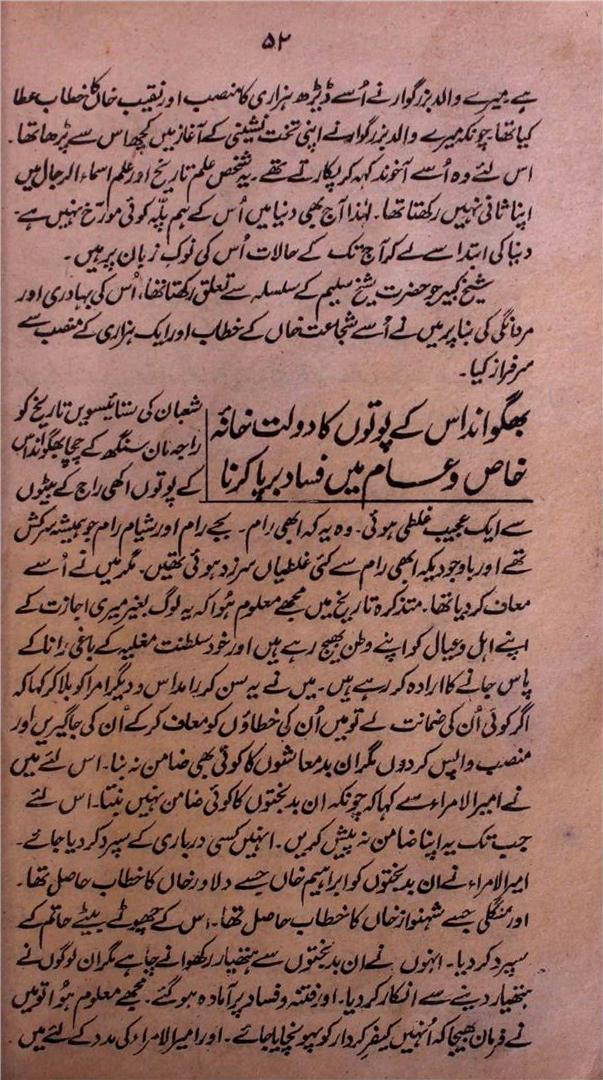 ۵۲
ہے میرے والد بزرگوار نے اُسے ڈیڑھ ہزاری کا منصب اور نقیب خاں کا خطاب عطا
کیا تھا چونکہ میرے والد بزرگوار نے اپنی تخت نشینی کے آغاز میں کچھ اس سے پڑھا تھا۔
اس لئے وہ اُسے آخوند کہہ کر پکارتے تھے۔ یہ شخص علم تاریخ اور علم اسماء الرجال میں
اپنا ثانی نہیں رکھتا تھا۔ لہٰذا آج بھی دنیا میں اُس کے ہم پلّہ کوئی مورّخ نہیں ہے۔
دنیا کی ابتدا سے لے کر آج تک کے حالات اُس کی نوک زبان پر ہیں۔
شیخ کبیر جو حضرت شیخ سلیم کے سلسلہ سے تعلق رکھتا تھا، اُس کی بہادری اور
مردانگی کی بنا پر میں نے اُسے شجاعت خاں کے خطاب اور ایک ہزاری کے منصب سے
سرفراز کیا۔
بھگوانداس کے پوتوں کا دولت خانہٴ
خاص و عام میں فساد برپا کرنا
شعبان کی ستائیسویں تاریخ کو
راجہ مان سنگھ کے چچا بھگوانداس
کے پوتوں اکھی راج کے بیٹوں
سے ایک عجیب غلطی ہوئی۔ وہ یہ کہ ابھی رام۔ بجے رام اور شیام رام جو ہمیشہ سرکش
تھے اور باوجودیکہ ابھی رام سے کئی غلطیاں سرزد ہوئی تھیں۔ مگر میں نے اُسے
معاف کر دیا تھا۔ متذکرہ تاریخ میں مجھے معلوم ہُوا کہ یہ لوگ بغیر میری اجازت کے
اپنے اہل و عیال کو اپنے وطن بھیج رہے ہیں اور خود سلطنت مغلیہ کے باغی رانا کے
پاس جانے کا ارادہ کر رہے ہیں۔ میں نے یہ سن کر رامداس و دیگر امرا کو بلا کر کہا کہ
اگر کوئی اُن کی ضمانت لے تو میں اُن کی خطاؤں کو معاف کر کے اُن کی جاگیریں اور
منصب واپس کر دوں مگر ان بدمعاشوں کا کوئی بھی ضامن نہ بنا۔ اس لئے میں
نے امیرالامراء سے کہا کہ چونکہ ان بدبختوں کا کوئی ضامن نہیں بنتا۔ اس لئے
جب تک یہ اپنا ضامن نہ پیش کریں۔ انہیں کسی درباری کے سپرد کر دیا جائے۔
امیرالامراء نے ان بدبختوں کو ابراہیم خاں جسے دلاور خاں کا خطاب حاصل تھا۔
اور منگلی جسے شہنواز خاں کا خطاب حاصل تھا۔ اس کے چھوٹے بیٹے حاتم کے
سپرد کر دیا۔ انہوں نے ان بدبختوں سے ہتھیار رکھوانے چاہے مگر ان لوگوں نے
ہتھیار دینے سے انکار کر دیا۔ اور فتنہ و فساد پر آمادہ ہو گئے۔ مجھے معلوم ہُوا تو میں
نے فرمان بھیجا کہ اُنہیں کیفر کردار کو پہونچایا جائے۔ اور امیرالامراء کی مدد کے لئے میں